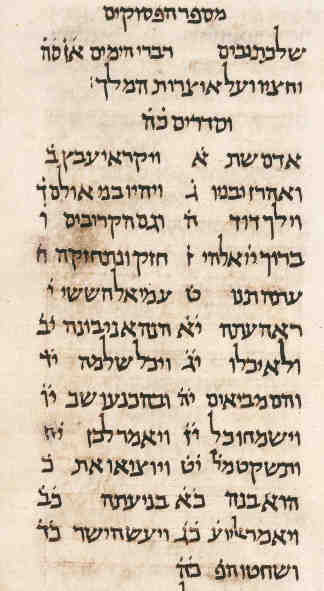 מספר הפסוקים
שלכתובים דברי הימים אזסה
וחציו ועל אוצרות המלך:
וסדרים כה
אדם שת א ויקרא יעבץ ב
ואהרן ובניו ג ויהיו בני אולם ד
וילך דוד ה וגם הקרובים ו
ברוך יי אלהי ז חזק ונתחזקה ח
עתה תנו ט עמיאל הששי י
ראה עתה יא הנה אני בונה יב
ולא יכלו יג ויכל שלמה יד
והם מביאים יה ובהכנעו שב יו
וישמחו כל יז ויאמר לכן יח
ותשקט מל יט ויוציאו את כ
הוא בנה כא בני עתה כב
ויאמר ליוע כג ויעש הישר כד
ושחטו הפ כה